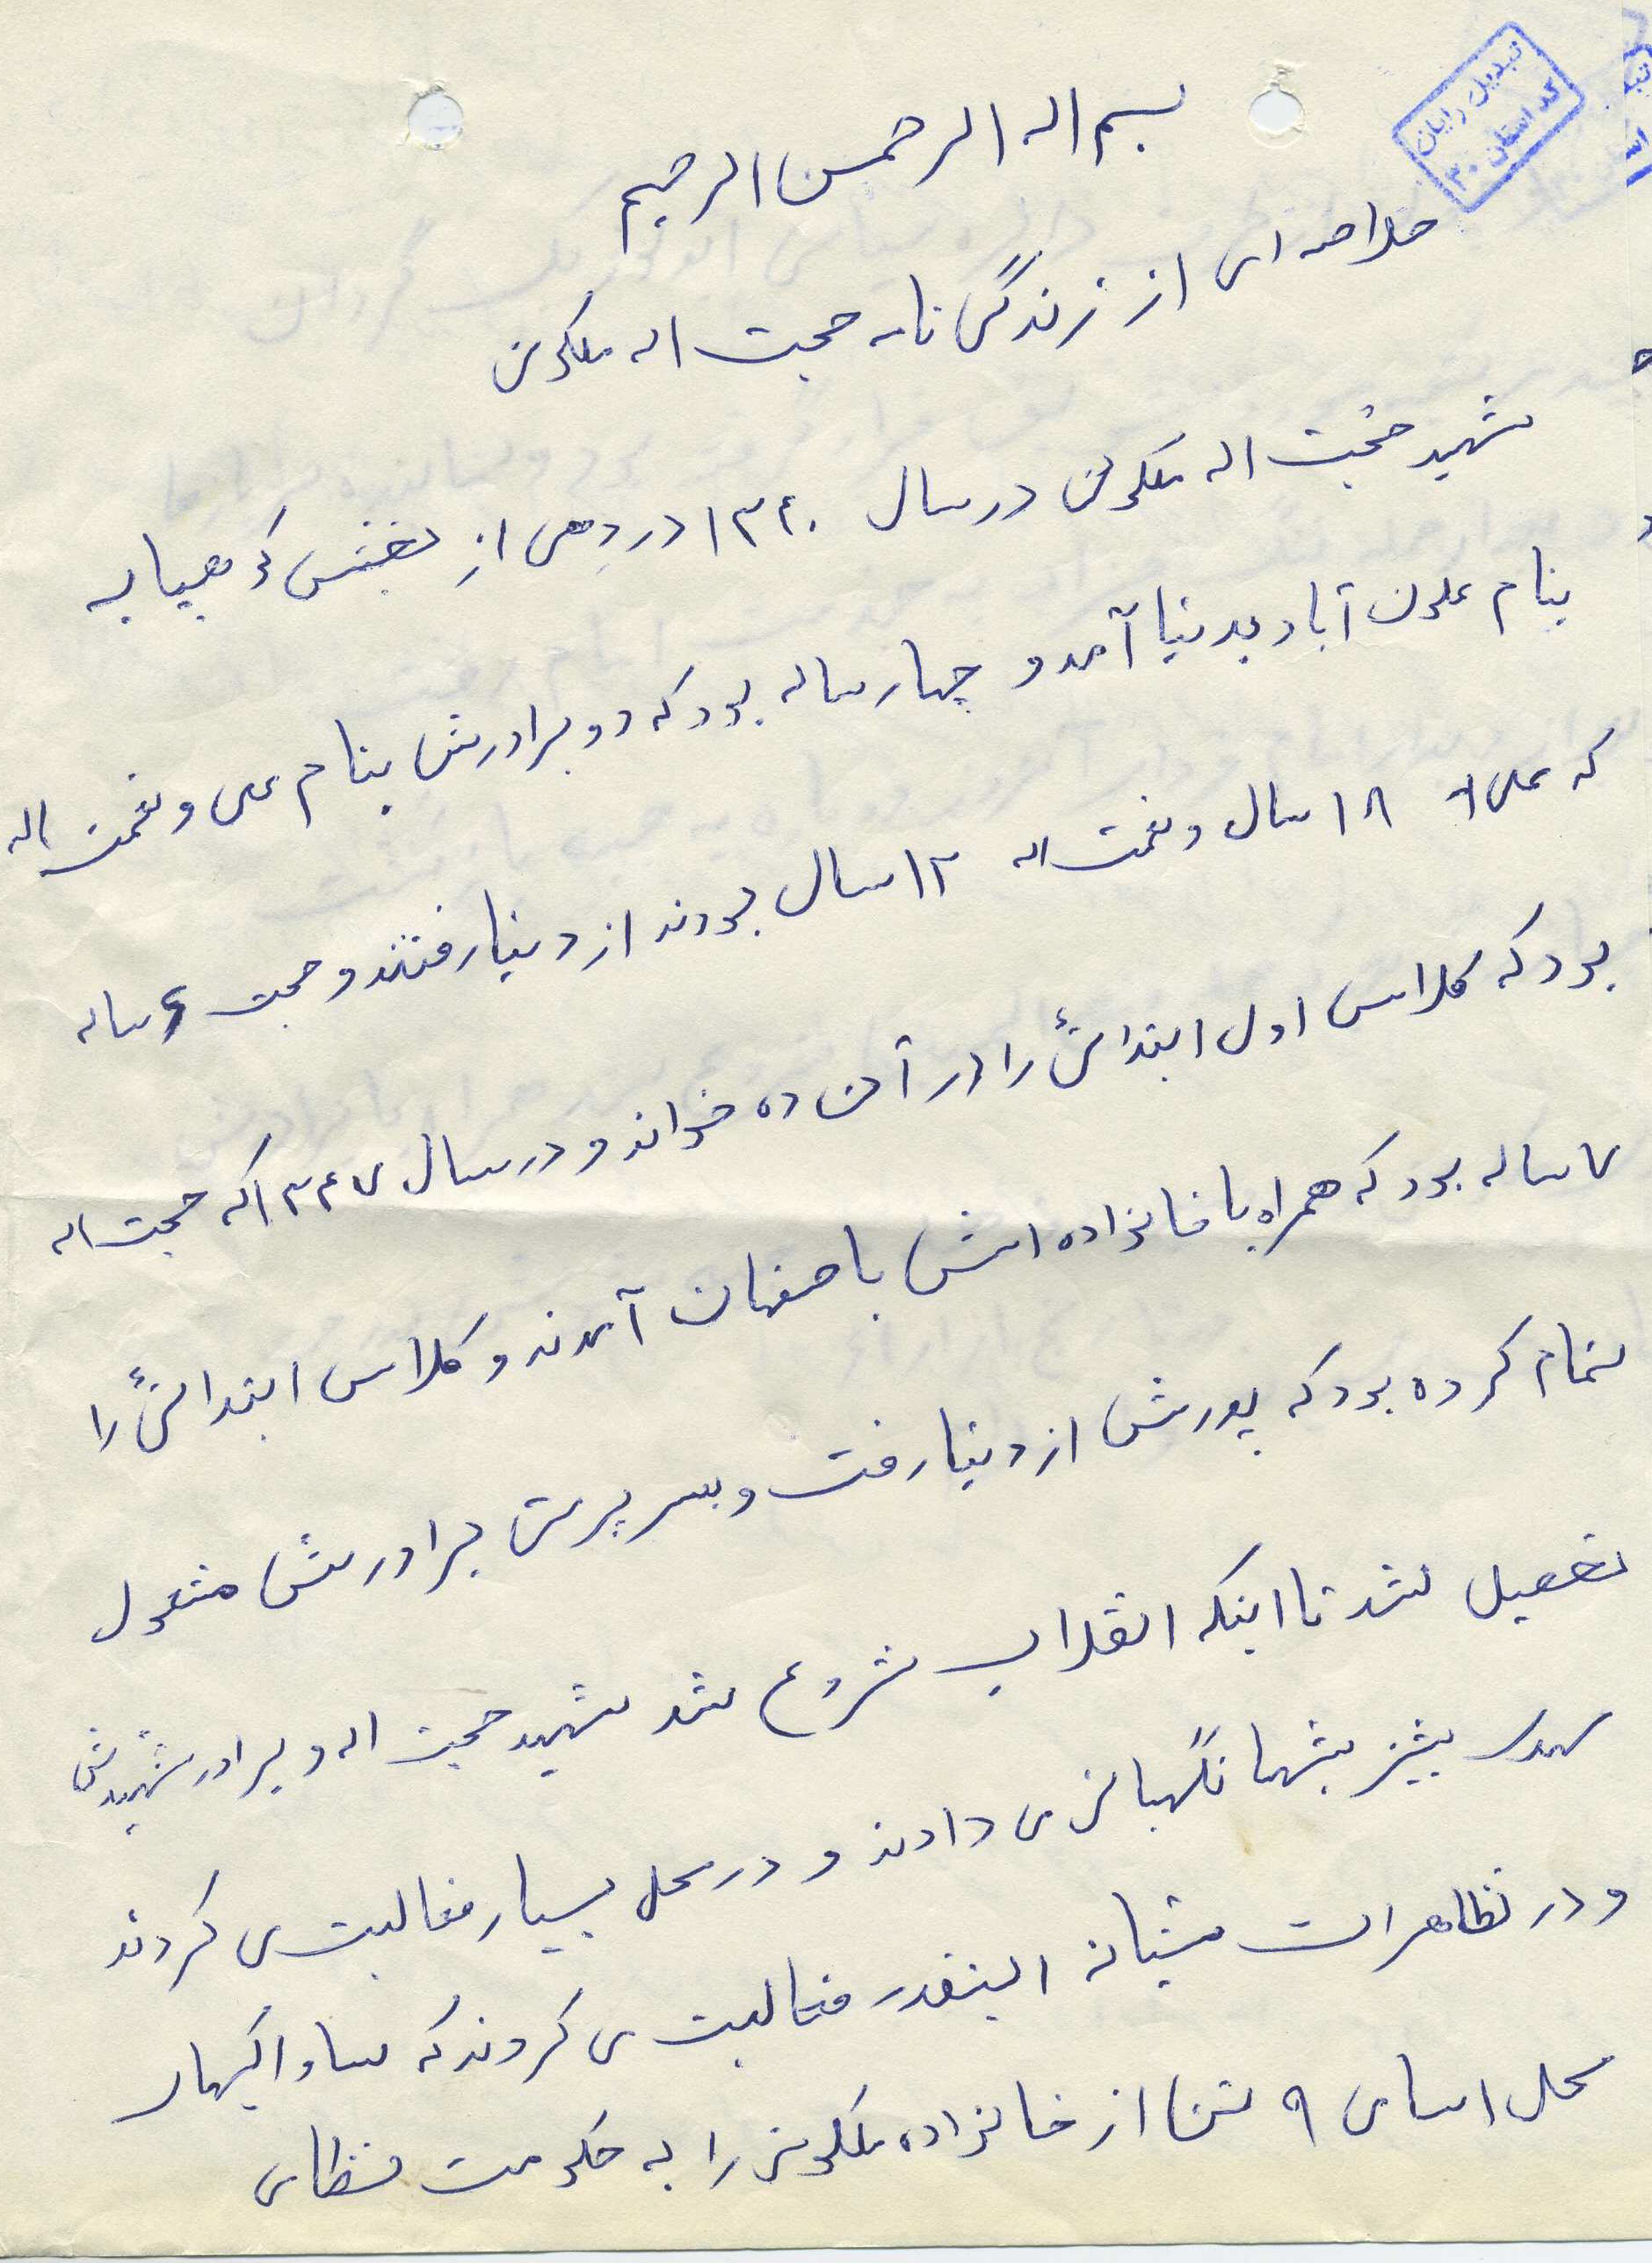 تبدیل رایان
کد استان ۳۰
بسم اله الرحمن الرحیم
خلاصه ای از زندگی نامه حجت اله ملکوتی
شهید حجت اله ملکوتی در سال ۱۳۴۰ در دهی از بخش
بنام علون آباد بدنیا آمد و چهار ساله بود که دو برادرش بنام علی و نعمت اله
که علی ۱۸ سال و نعمت اله ۱۲ سال بودند از دنیا رفتند و حجت ۶ ساله
بود که کلاس اول ابتدائی را در آن ده خواند و در سال ۱۳۴۷ که حجت اله
۷ ساله بود که همراه با خانواده اش باصفهان آمدند و کلاس ابتدائی را
تمام کرده بود که پدرش از دنیا رفت و بسرپرستی برادرش مشغول
تحصیل شد تا اینکه انقلاب شروع شد شهید حجت اله و برادر شهیدش
بیشتر شبها نگهبانی می دادند و در محل بسیار فعالیت می کردند
و در تظاهرات شبانه اینقدر فعالیت می کردند که ساواکیهای
محل اسامی ۹ تن از خانواده ملکوتی را به حکومت نظامی